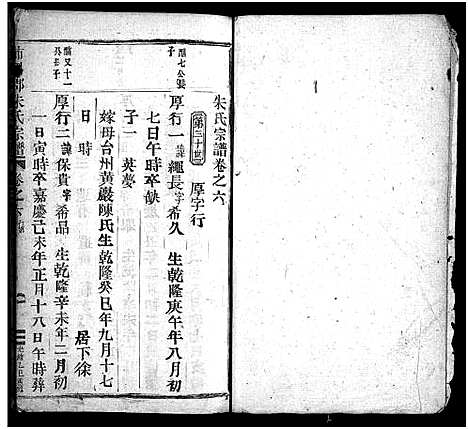 朱氏宗譜卷之六
第三十世 厚字行
厚行一 諱繩長 字希久 生乾隆庚午年八月初
七日午時卒缺
子一 英夢
嫁母台州黃巖陳氏生乾隆癸巳年九月十七
日 時 居下徐
厚行二 諱保貴 字希品 生乾隆辛未年二月初
一日寅時卒嘉慶己未年正月十八日午時葬
朱氏宗譜